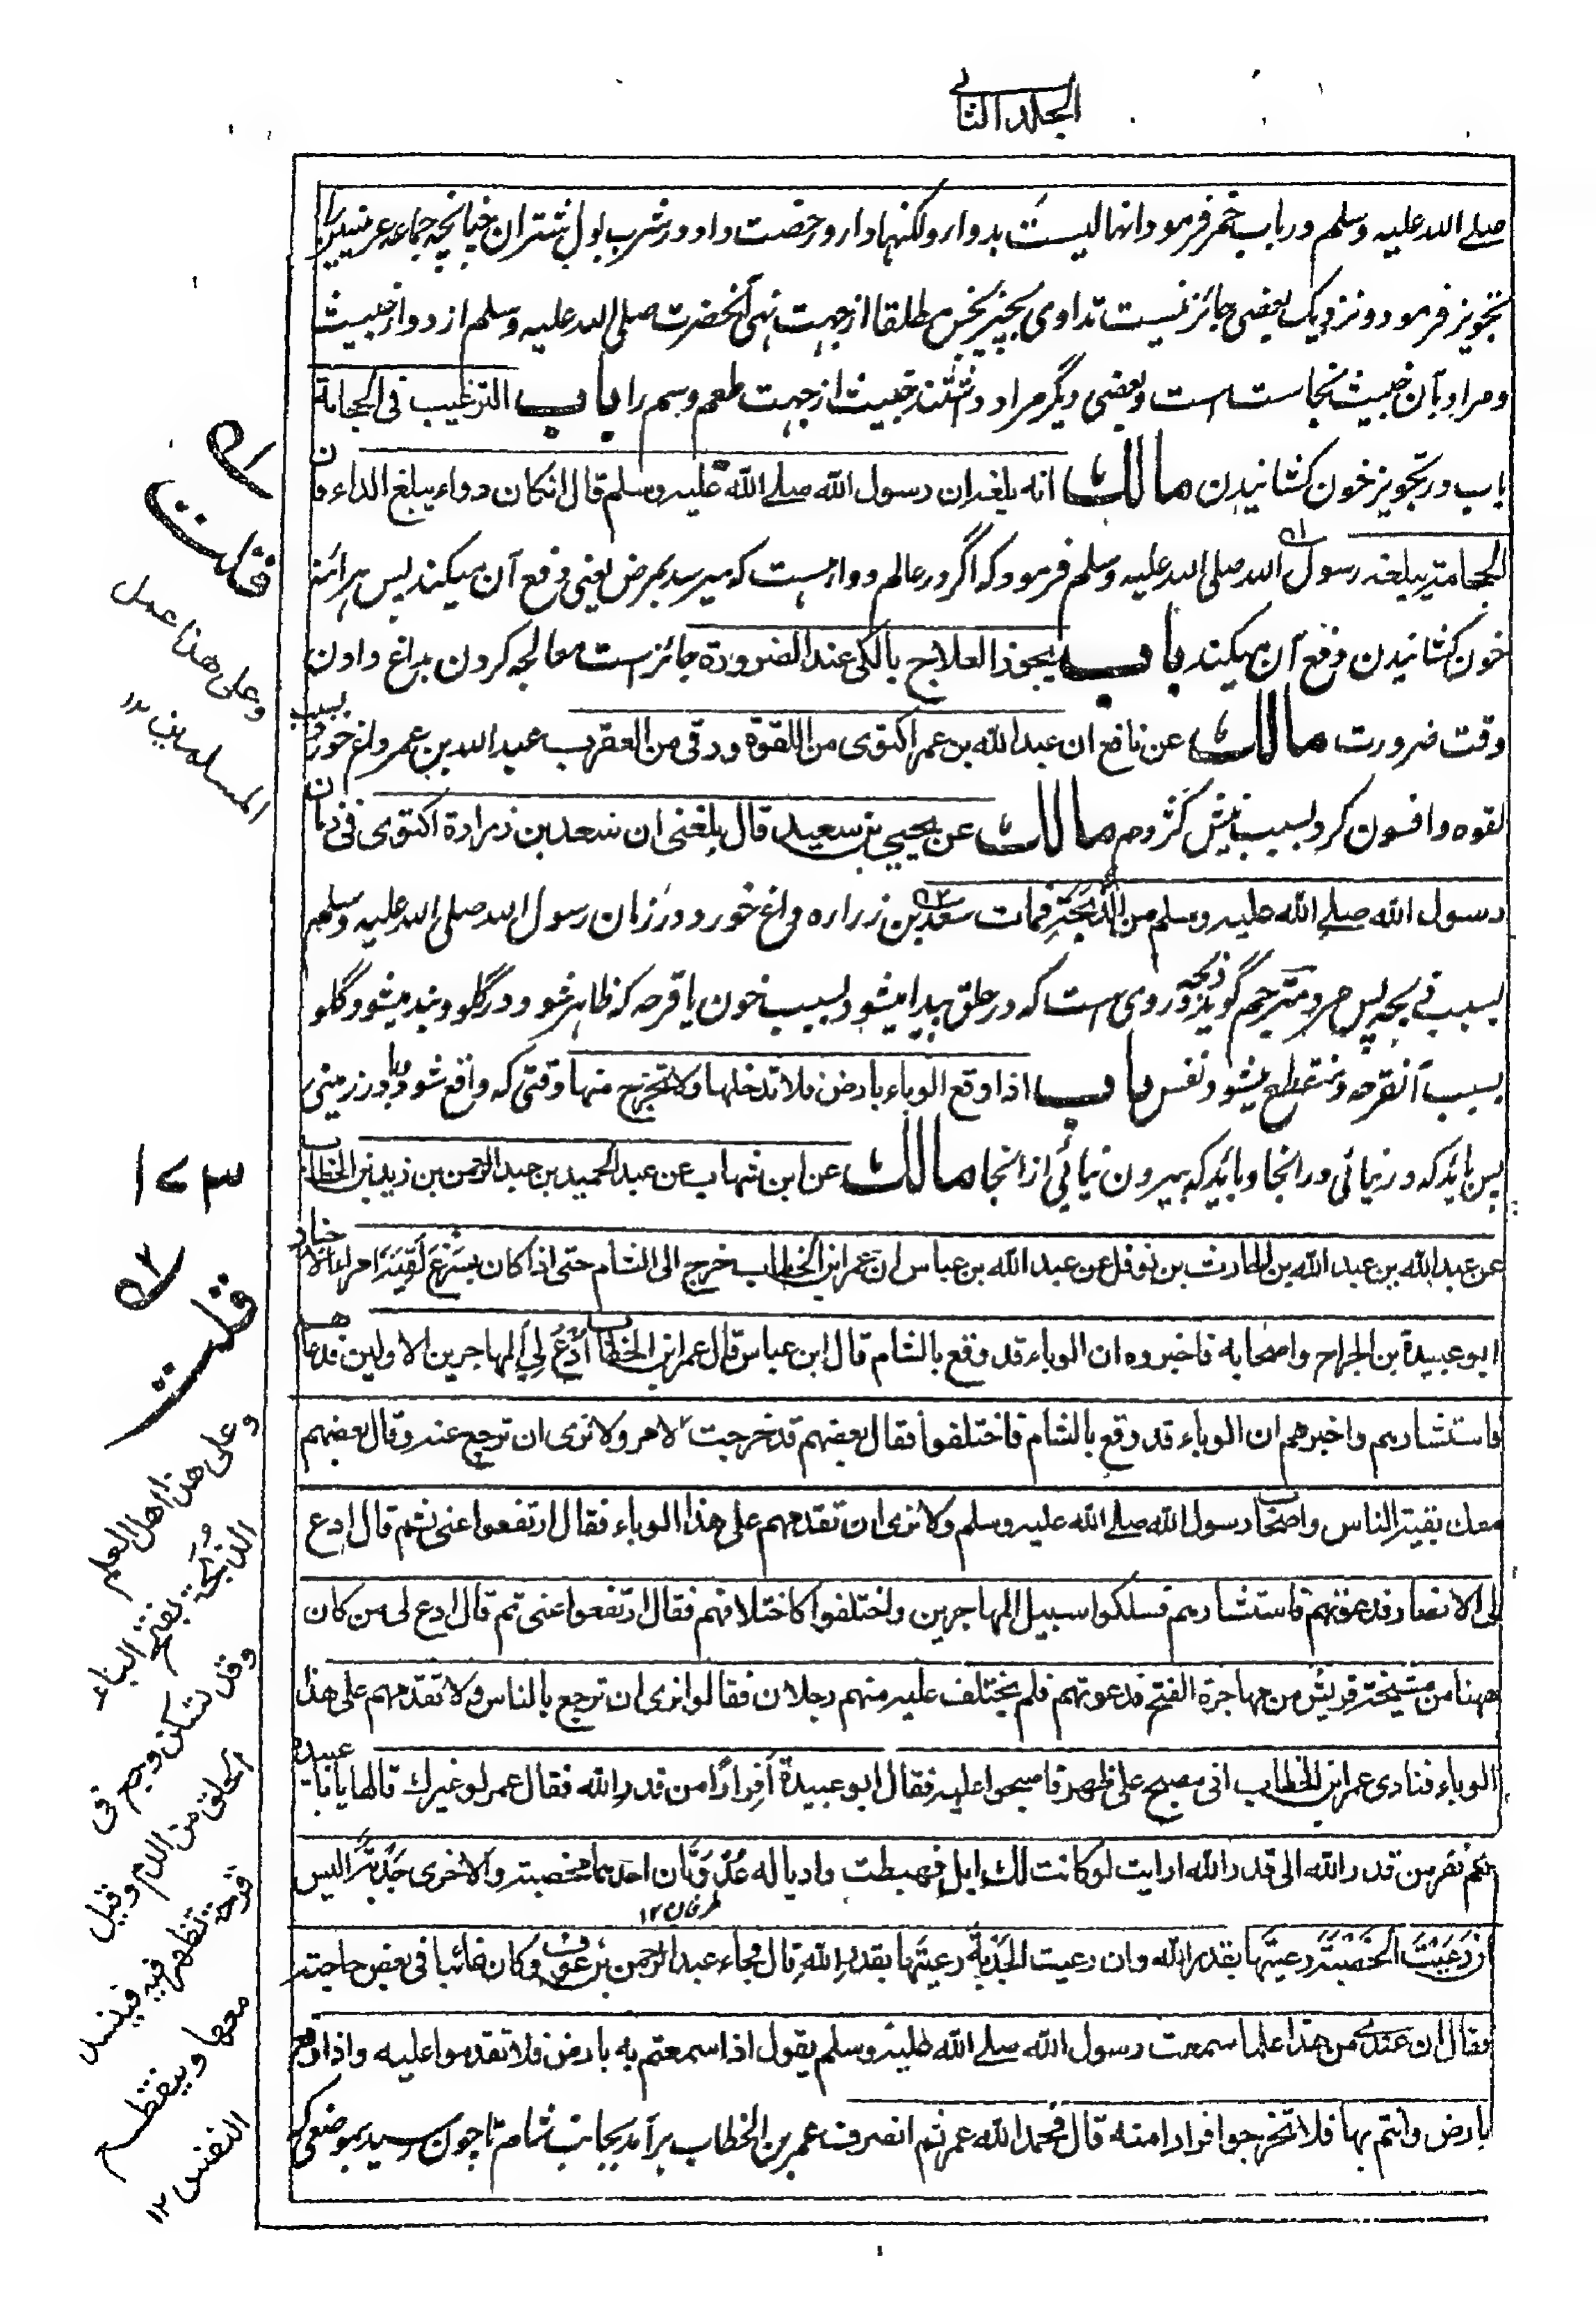 المجلد الثانی
صلے الله علیه وسلم در باب خمر فرمود انها لیست بدواء ولکنها داء و رخصت داد در شرب بول شتران چنانچه جماعه عرنیین را
تجویز فرمود و نزدیک بعضی جائز نیست تداوی بچیز نجس مطلقا از جهت نهی آنحضرت صلی الله علیه وسلم از دواء خبیث
و مراد بآن خبیث نجاست است و بعضی دیگر مراد داشتند خبیث از جهت طعم و سم را باب الترغیب فی الحجامة
باب در تجویز خون کشانیدن مالك انه بلغه ان رسول الله صلے الله علیه وسلم قال ان کان دواء یبلغ الداء فان
الحجامة یبلغه رسول الله صلی الله علیه وسلم فرمود که اگر در عالم دواء هست که میرسد بمرض یعنی دفع آن میکند پس هرائنه
خون کشانیدن دفع آن میکند باب یجوز العلاج بالکی عند الضرورة جائز است معالجه کردن بداغ دادن
وقت ضرورت مالك عن نافع ان عبد الله بن عمر اکتوی من اللقوة ورقی من العقرب عبد الله بن عمر داغ خورد بسبب
لقوه و افسون کرد بسبب نیش کژدم مالك عن یحیی بن سعید قال بلغنی ان سعد بن زرارة اکتوی فی زمان
رسول الله صلے الله علیه وسلم من الذبحة فمات سعد بن زراره داغ خورد در زمان رسول الله صلی الله علیه وسلم
بسبب ذبحه پس مرد مترجم گوید ذبحه دردی است که در حلق پیدا میشود بسبب خون یا قرحه که ظاهر شود در گلو و بند میشود گلو
بسبب آنقرحه و منقطع میشود نفس باب اذا وقع الوباء بارض فلا تدخلها ولا تخرج منها وقتی که واقع شود وبا در زمینی
پس باید که در نیائی در انجا و باید که بیرون نیائی از انجا مالك عن ابن شهاب عن عبد الحمید بن عبد الرحمن بن زید بن الخطاب
عن عبد الله بن عبد الله بن الحارث بن نوفل عن عبد الله بن عباس ان عمر ابن الخطاب خرج الی الشام حتی اذا کان بسرغ لقیه امراء الاجناد
ابو عبیدة بن الجراح واصحابه فاخبروه ان الوباء قد وقع بالشام قال ابن عباس قال عمر ابن الخطاب ادع لی المهاجرین الاولین فدعاهم
فاستشارهم واخبرهم ان الوباء قد وقع بالشام فاختلفوا فقال بعضهم قد خرجت لامر ولا نری ان ترجع عنه وقال بعضهم
معك بقیة الناس واصحاب رسول الله صلے الله علیه وسلم ولا نری ان تقدمهم علی هذا الوباء فقال ارتفعوا عنی ثم قال ادع
لی الانصار فدعوتهم فاستشارهم فسلکوا سبیل المهاجرین واختلفوا کاختلافهم فقال ارتفعوا عنی ثم قال ادع لی من کان
ههنا من مشیخة قریش من مهاجرة الفتح فدعوتهم فلم یختلف علیه منهم رجلان فقالوا نری ان ترجع بالناس ولا تقدمهم علی هذا
الوباء فنادی عمر ابن الخطاب انی مصبح علی ظهر فاصبحوا علیه فقال ابو عبیدة أفِرارًا من قدر الله فقال عمر لو غیرك قالها یا ابا عبیدة
نعم نفر من قدر الله الی قدر الله ارایت لو کانت لك ابل فهبطت وادیا له عُدْوَتَان احدهما مخصبة والاخری جَدْبَة الیس
طرفان ۱۲
ان رَعَیْتَ الخَصْبَة رعیتها بقدر الله وان رعیت الجَدْبَة رعیتها بقدر الله قال فجاء عبد الرحمن بن عوف وکان غائبا فی بعض حاجته
فقال ان عندی من هذا علما سمعت رسول الله صلے الله علیه وسلم یقول اذا سمعتم به بارض فلا تقدموا علیه واذا وقع
بارض وانتم بها فلا تخرجوا فرارا منه قال فحمد الله عمر ثم انصرف عمر بن الخطاب برآمد بجانب شام تا چون رسید بموضعی که
ف۱
قلت
وعلی هذا عمل
المسلمین ۱۲
۱۷۳
ف۲
قلت
وعلی هذا اهل العلم
الذُبَحة بفتح الباء
وقد تسکن وجع فی
الحلق من الدم وقیل
قرحة تظهر فیه فینسد
معها وینقطع
النفس ۱۲